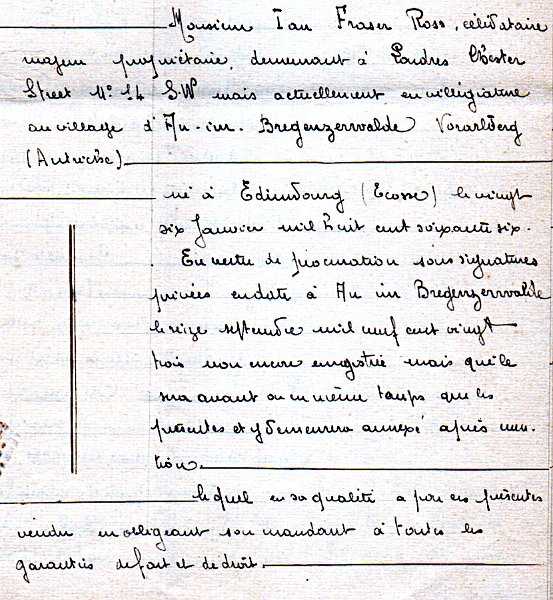 Monsieur Ian Fraser Ross, célibataire
majeur propriétaire, demeurant à Londres Chester
Street N° 14 S.W mais actuellement en villégiature
au village d'Au-im-Bregenzerwalde Vorarlberg
(Autriche)
né à Edimbourg (Ecosse) le vingt
six Janvier mil huit cent soixante six.
En vertu de procuration sous signatures
privées en date à Au im Bregenzerwalde
le seize septembre mil neuf cent vingt
trois non encore enregistré mais qu'le
sera avant ou en même temps que les
présentes et y demeurera annexé après men-
tion.
lequel en sa qualité a par ces présentes
vendu en obligeant son mandant à toutes les
garanties de fait et de droit.